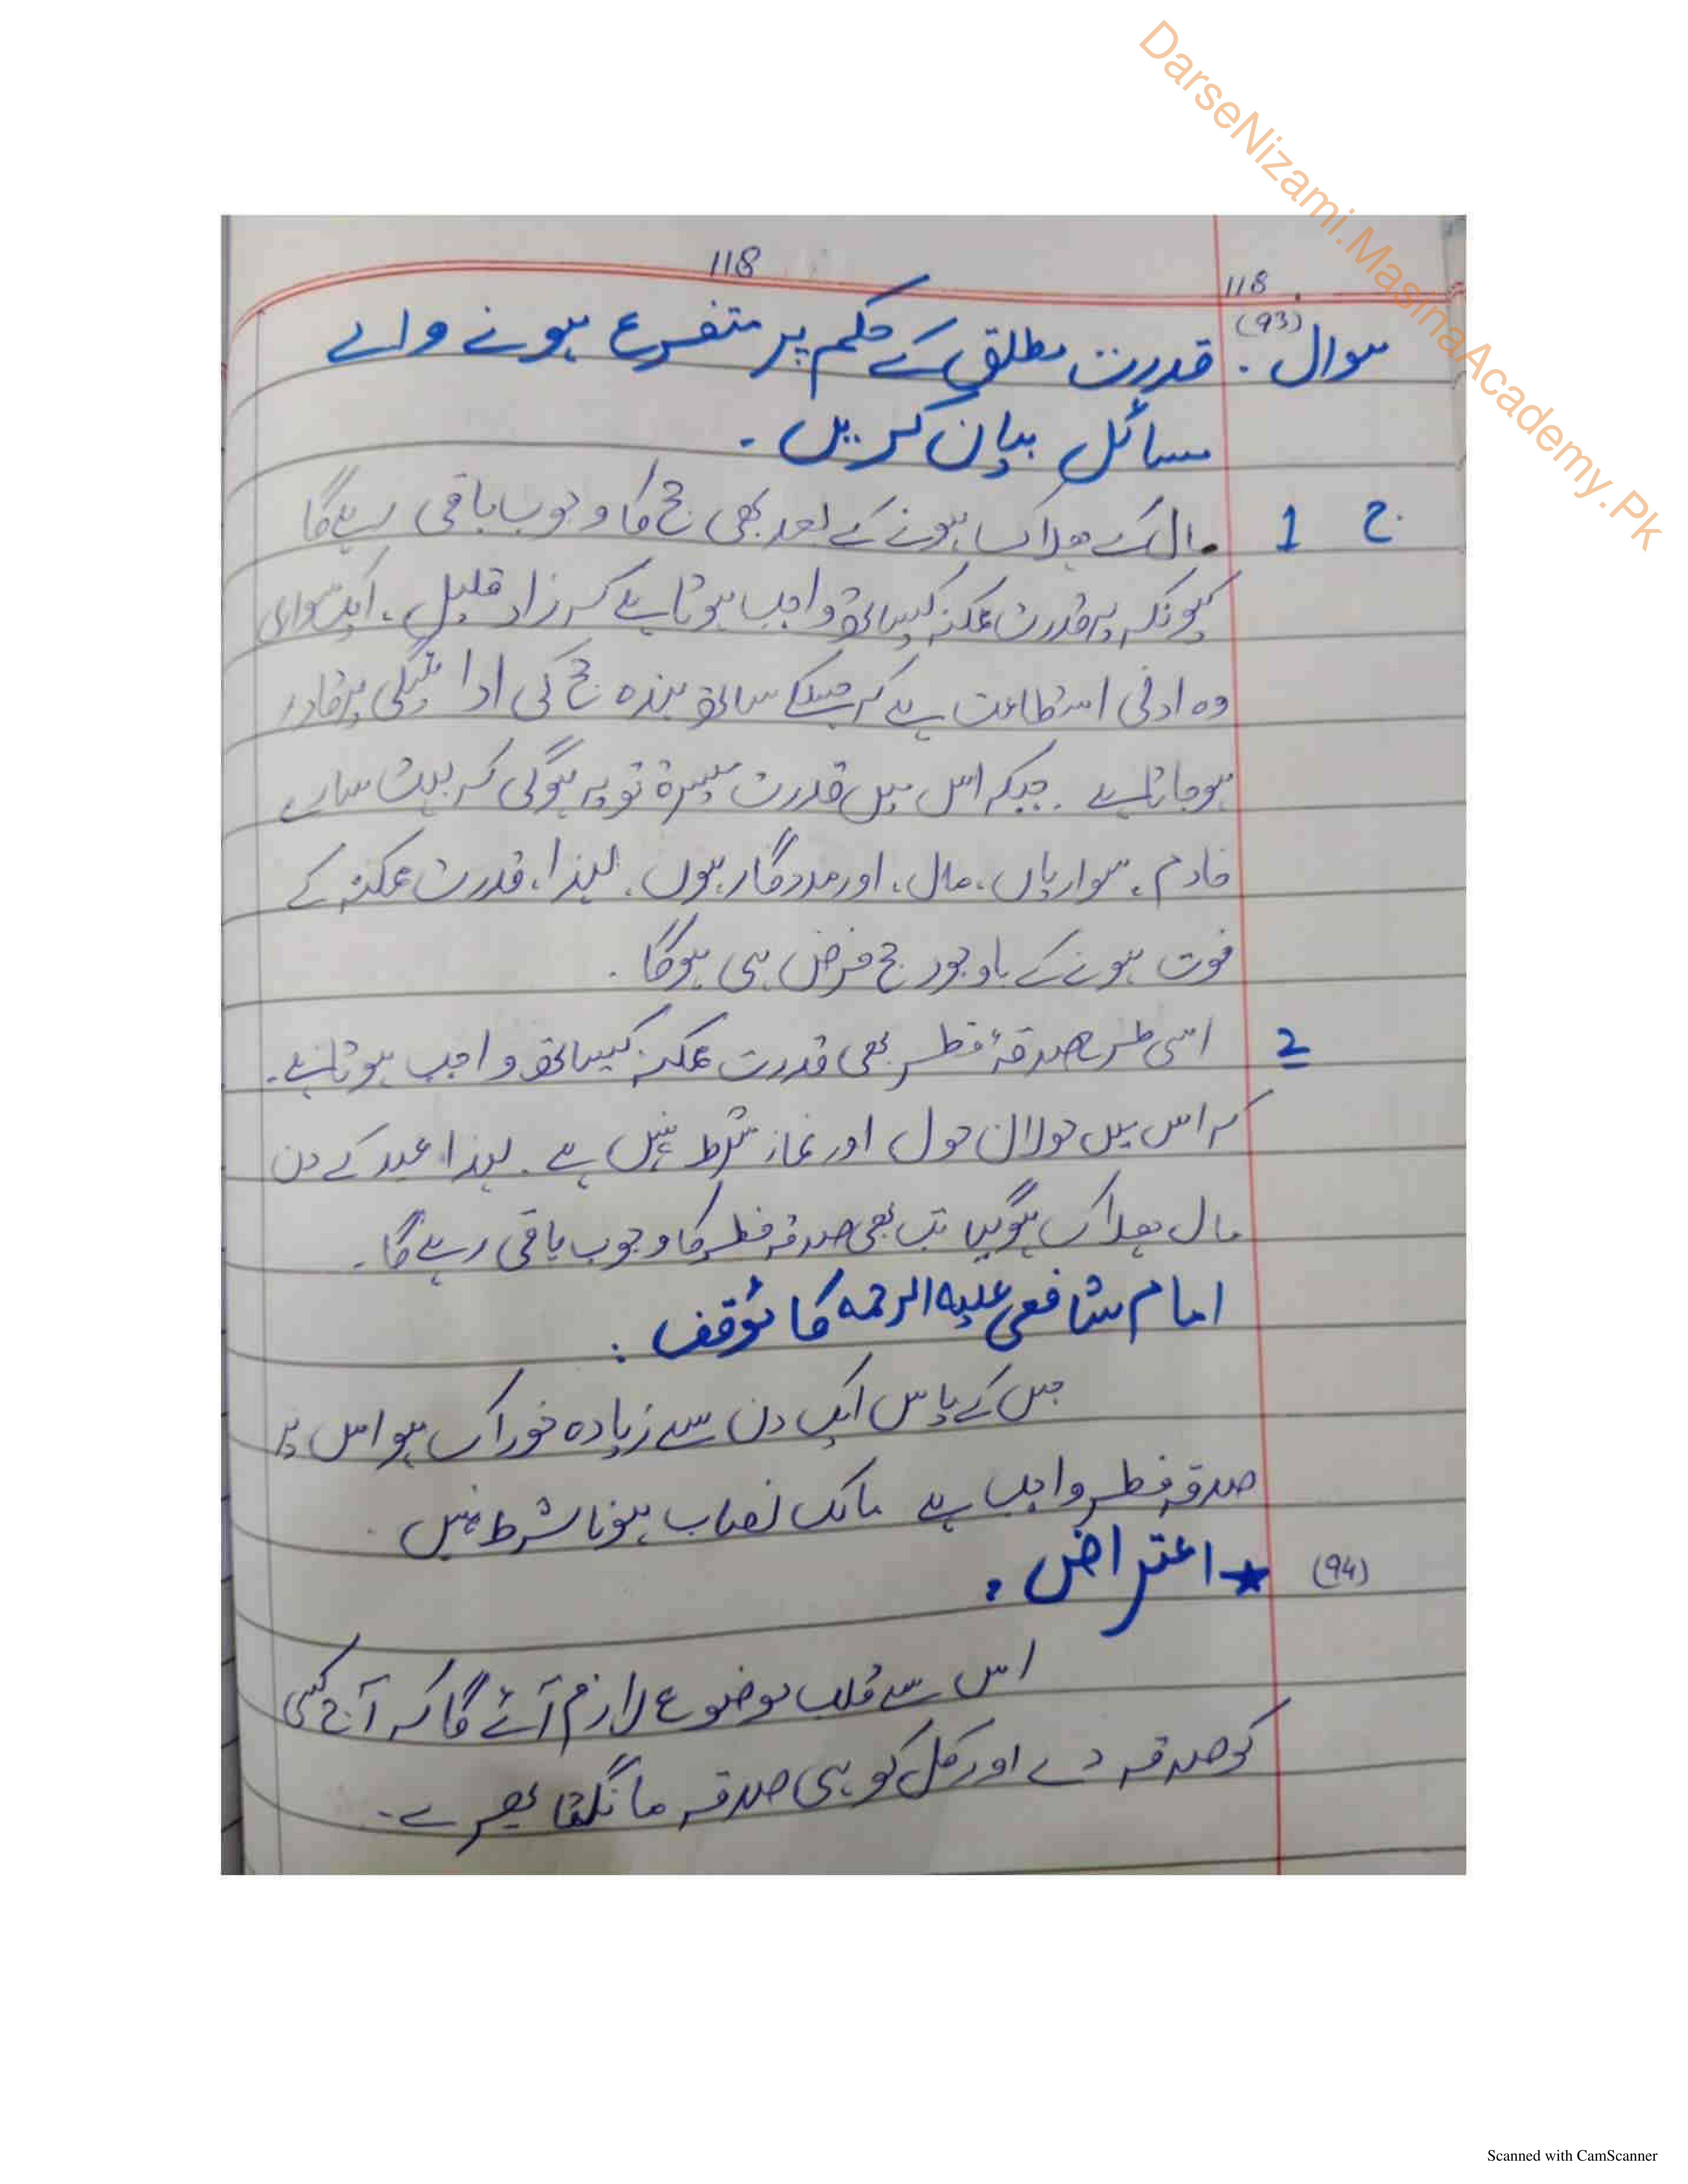 DarseNizami.MasinaAcademy.Pk
118
118
(93)
سوال . قدرت مطلق کے حکم پر متفرع ہونے والے
مسائل بیان کریں ۔
ج 1 مال کے ہلاک ہونے کے بعد بھی حج کا وجوب باقی رہے گا
کیونکہ یہ قدرت ممکنہ کیساتھ واجب ہوتا ہے کہ زاد قلیل ، ایک سواری
وہ ادنی استطاعت ہے کہ جسکے ساتھ بندہ حج کی ادائیگی پر قادر
ہوجاتا ہے . جبکہ اس میں قدرت میسرۃ تو یہ ہوگی کہ بہت سارے
خادم ، سواریاں ، مال ، اور مددگار ہوں . لہذا ، قدرت ممکنہ کے
فوت ہونے کے باوجود حج فرض ہی ہوگا .
2 اسی طرح صدقۂ فطر بھی قدرت ممکنہ کیساتھ واجب ہوتا ہے ۔
کہ اس میں حولان حول اور نماء شرط نہیں ہے . لہذا عید کے دن
مال ہلاک ہوگیا تب بھی صدقہ فطر کا وجوب باقی رہے گا ۔
امام شافعی علیہ الرحمہ کا مؤقف :
جس کے پاس ایک دن سے زیادہ خوراک ہو اس پر
صدقہ فطر واجب ہے مالک نصاب ہونا شرط نہیں .
(94) ★ اعتراض :
اس سے قلب موضوع لازم آئے گا کہ آج کسی
کو صدقہ دے اور کل کو ہی صدقہ مانگتا پھرے ۔
Scanned with CamScanner